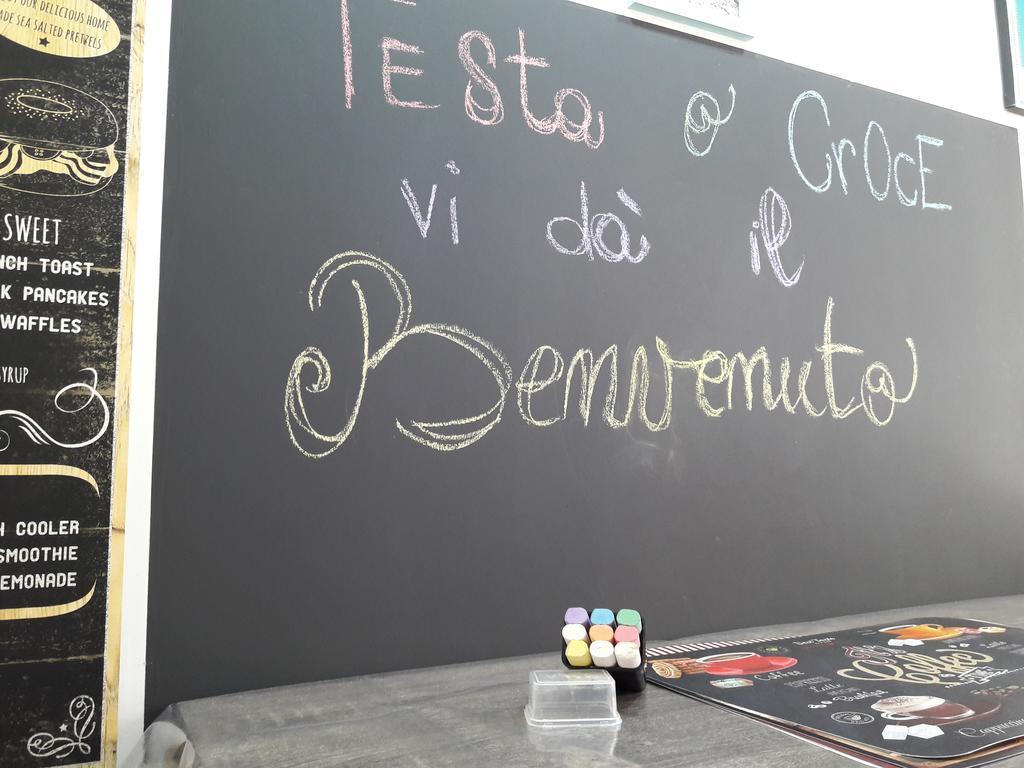 OUR DELICIOUS HOME
SEA SALTED PRETZELS
SWEET
TOAST
PANCAKES
WAFFLES
SYRUP
COOLER
SMOOTHIE
TEsta o CrOcE
vi dà il
Benvenuto
Coffee
Coffee
Cappuccino